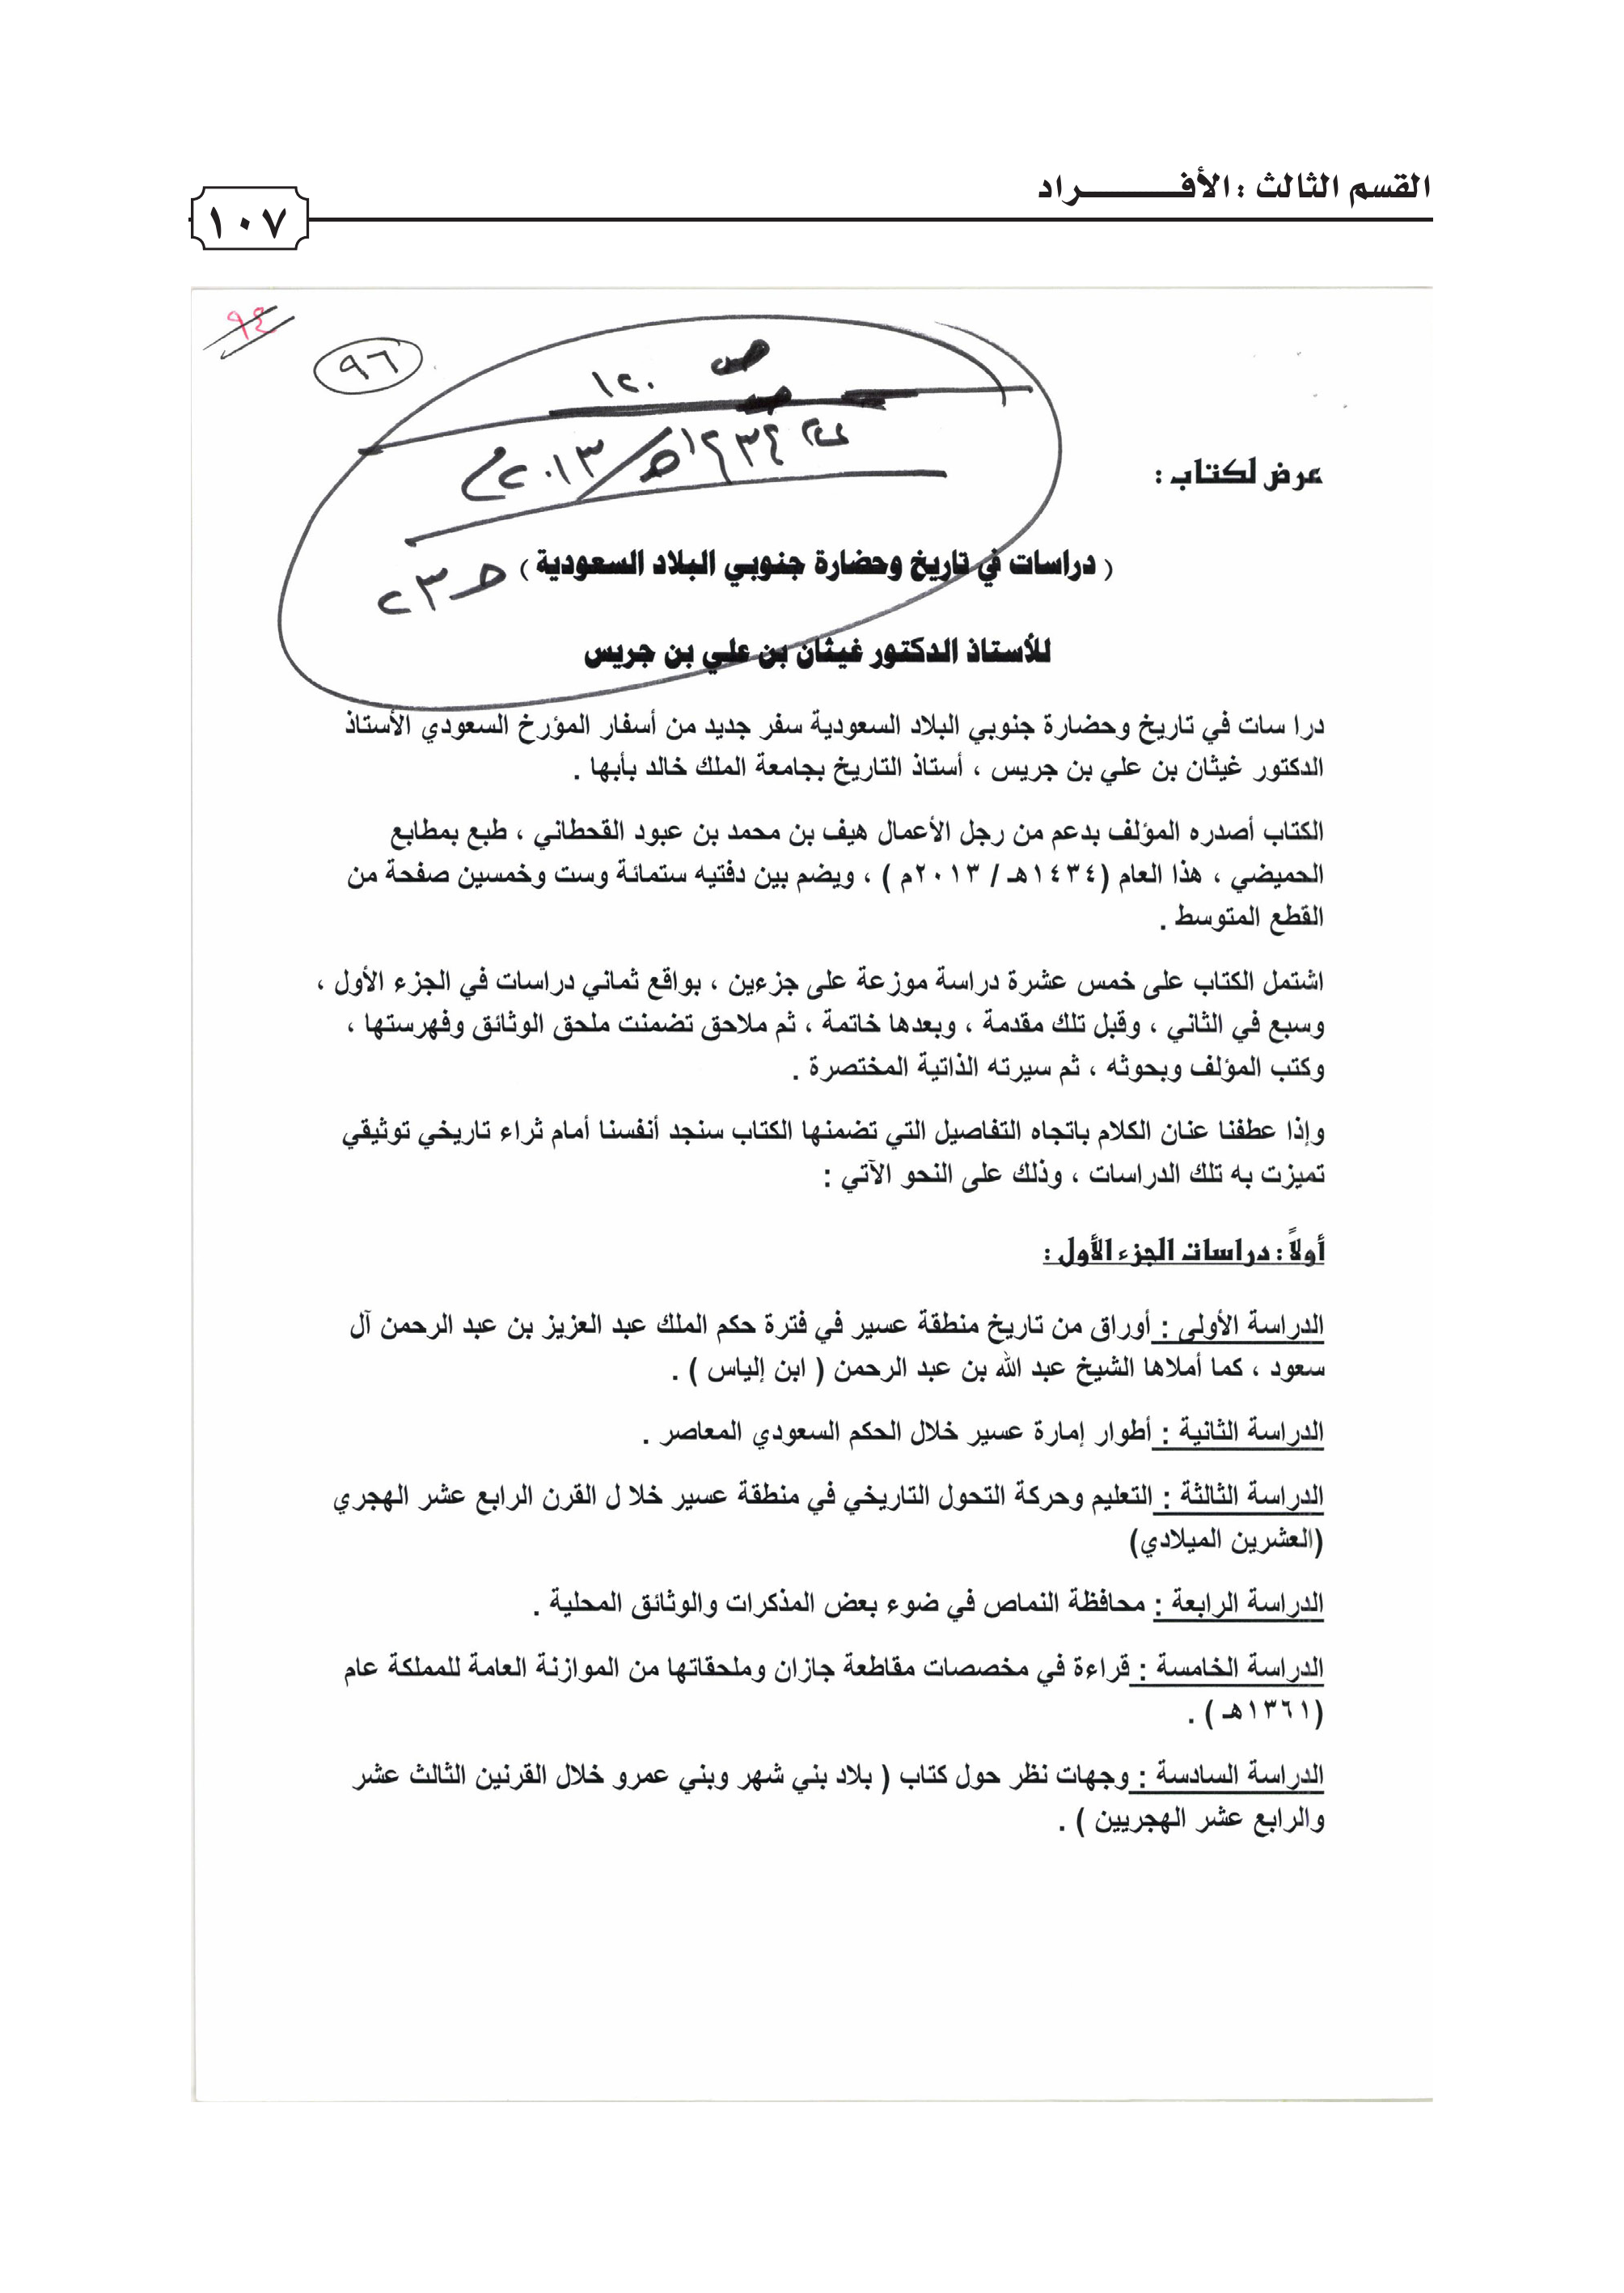 القسم الثالث : الأفـــــــــراد
١٠٧
٩٤
٩٦
ص ١٢٠
١٤٣٤هـ / ٢٠١٣م
عرض لكتاب :
( دراسات في تاريخ وحضارة جنوبي البلاد السعودية )
للأستاذ الدكتور غيثان بن علي بن جريس
درا سات في تاريخ وحضارة جنوبي البلاد السعودية سفر جديد من أسفار المؤرخ السعودي الأستاذ
الدكتور غيثان بن علي بن جريس ، أستاذ التاريخ بجامعة الملك خالد بأبها .
الكتاب أصدره المؤلف بدعم من رجل الأعمال هيف بن محمد بن عبود القحطاني ، طبع بمطابع
الحميضي ، هذا العام (١٤٣٤هـ / ٢٠١٣م ) ، ويضم بين دفتيه ستمائة وست وخمسين صفحة من
القطع المتوسط .
اشتمل الكتاب على خمس عشرة دراسة موزعة على جزءين ، بواقع ثماني دراسات في الجزء الأول ،
وسبع في الثاني ، وقبل تلك مقدمة ، وبعدها خاتمة ، ثم ملاحق تضمنت ملحق الوثائق وفهرستها ،
وكتب المؤلف وبحوثه ، ثم سيرته الذاتية المختصرة .
وإذا عطفنا عنان الكلام باتجاه التفاصيل التي تضمنها الكتاب سنجد أنفسنا أمام ثراء تاريخي توثيقي
تميزت به تلك الدراسات ، وذلك على النحو الآتي :
أولاً : دراسات الجزء الأول :
الدراسة الأولى : أوراق من تاريخ منطقة عسير في فترة حكم الملك عبد العزيز بن عبد الرحمن آل
سعود ، كما أملاها الشيخ عبد الله بن عبد الرحمن ( ابن إلياس ) .
الدراسة الثانية : أطوار إمارة عسير خلال الحكم السعودي المعاصر .
الدراسة الثالثة : التعليم وحركة التحول التاريخي في منطقة عسير خلا ل القرن الرابع عشر الهجري
(العشرين الميلادي)
الدراسة الرابعة : محافظة النماص في ضوء بعض المذكرات والوثائق المحلية .
الدراسة الخامسة : قراءة في مخصصات مقاطعة جازان وملحقاتها من الموازنة العامة للمملكة عام
(١٣٦١هـ ) .
الدراسة السادسة : وجهات نظر حول كتاب ( بلاد بني شهر وبني عمرو خلال القرنين الثالث عشر
والرابع عشر الهجريين ) .